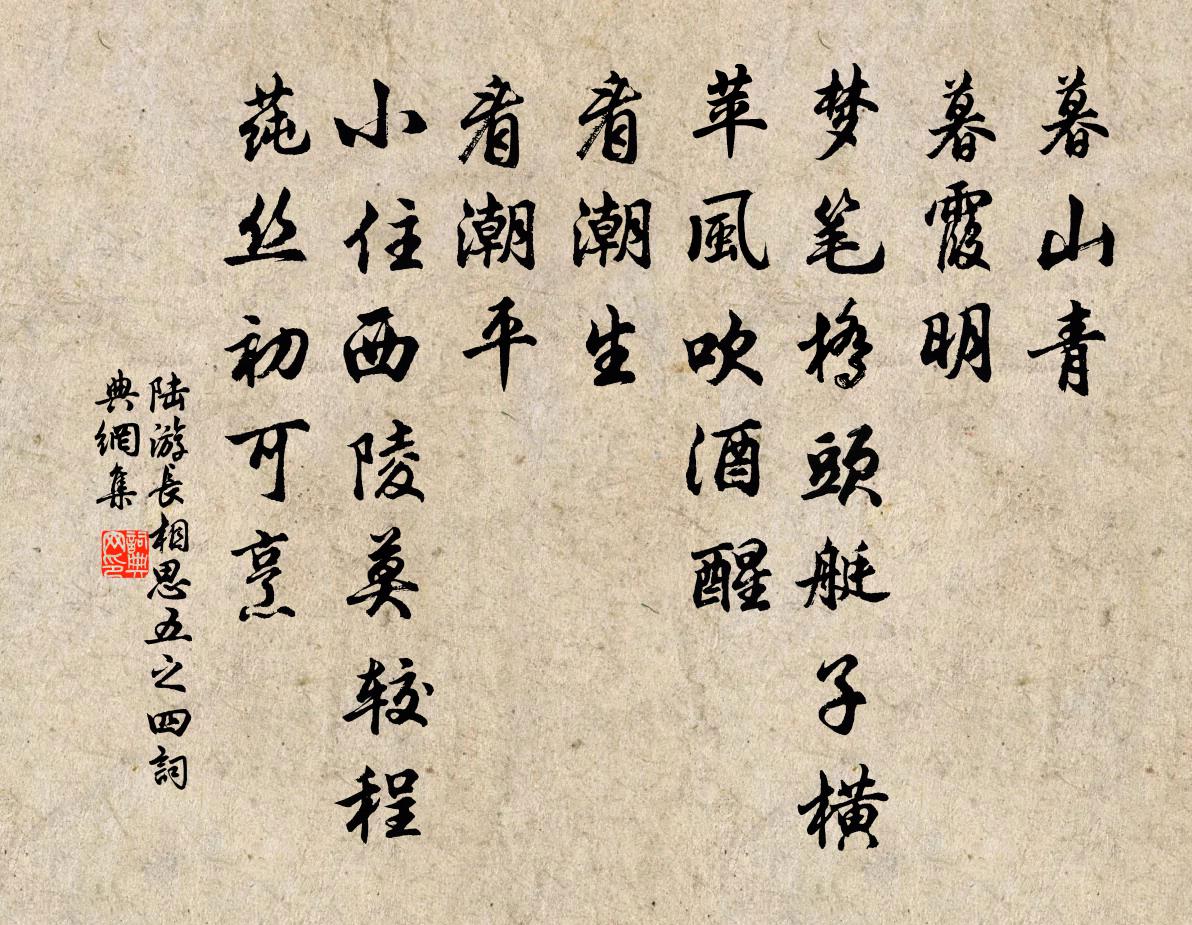 暮山青
暮霞明
梦笔橋頭艇子横
苹風吹酒醒
看潮生
看潮平
小住西陵莫较程
莼丝初可烹
陆游長相思五之四詞
典網集
詞典
网印